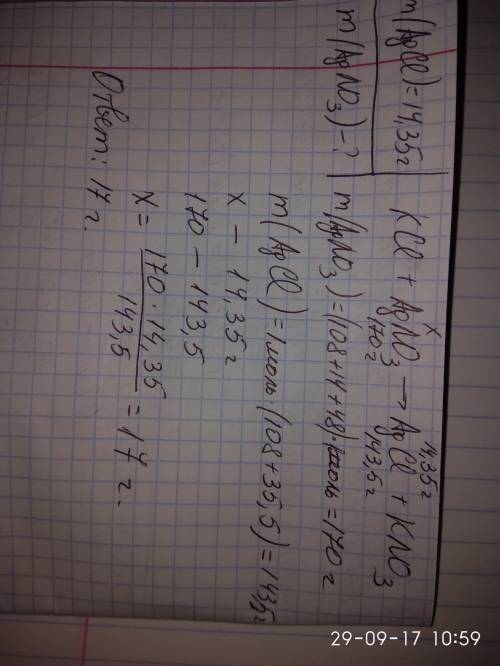 m(AgCl)=14,35г
m(AgNO₃)-?
x 14,35г
KCl + AgNO₃ → AgCl + KNO₃
170г 143,5г
m(AgNO₃)=(108+14+48)·1моль=170г
m(AgCl)=1моль·(108+35,5)=143,5г
x — 14,35г
170 — 143,5
x = 170·14,35 / 143,5 = 17г.
Ответ: 17г.
29-09-17 10:59